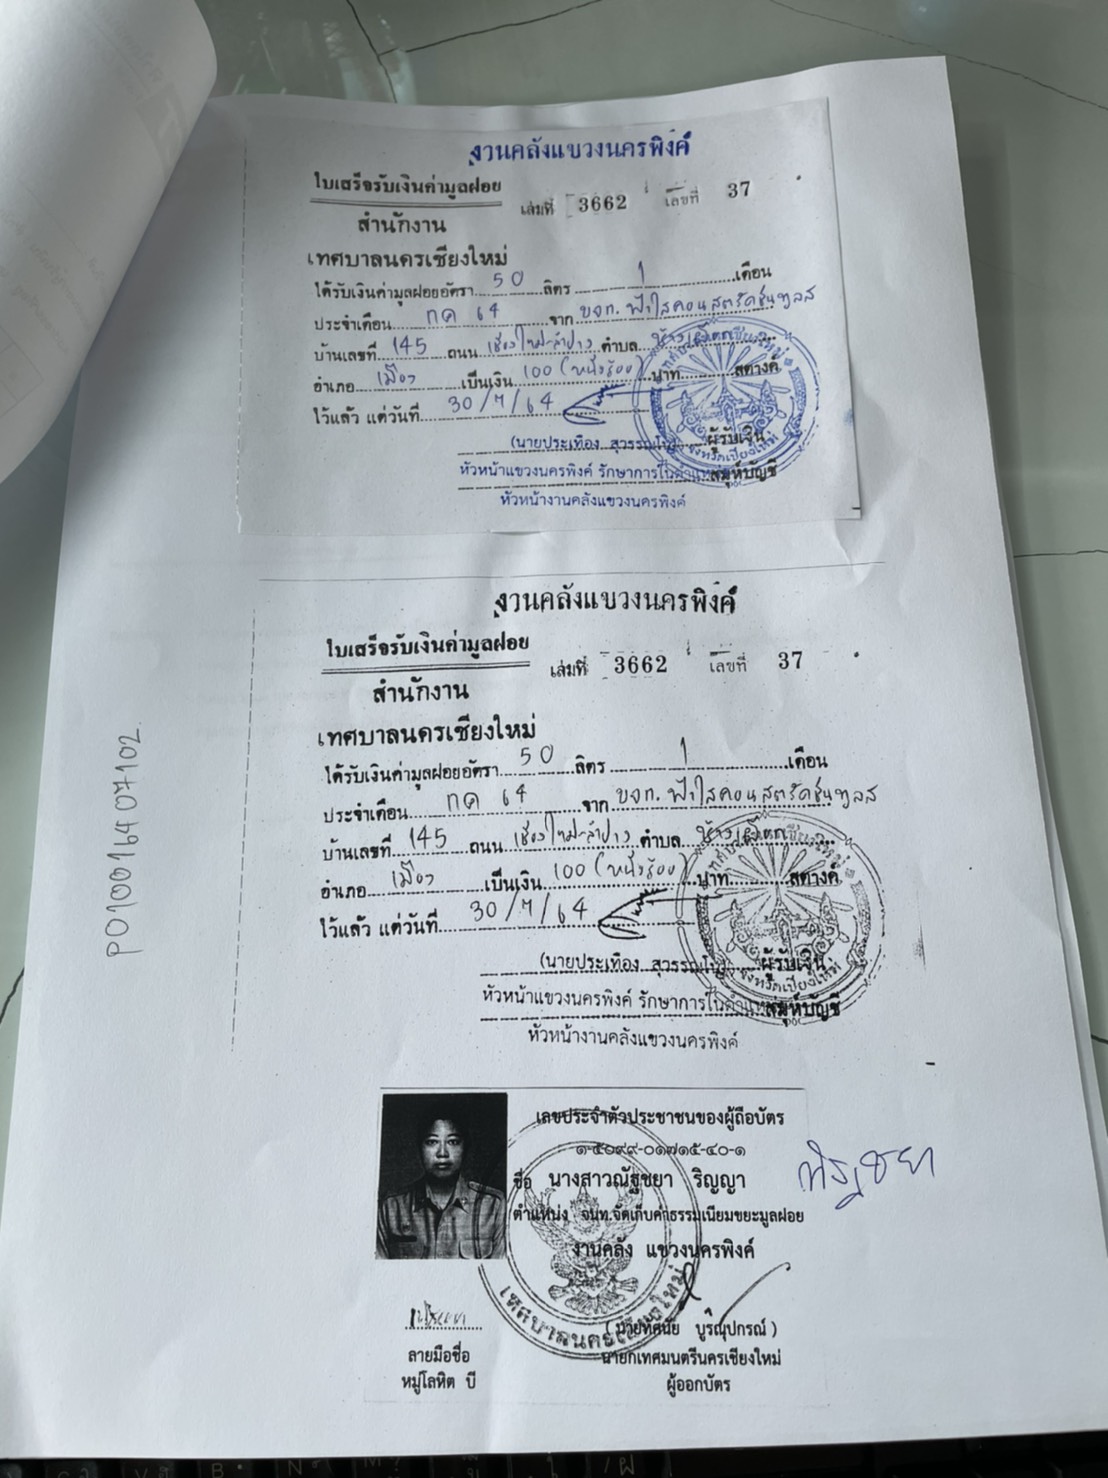 งานคลังแขวงนครพิงค์
ใบเสร็จรับเงินค่ามูลฝอย
เล่มที่ 3662 เลขที่ 37
สำนักงาน
เทศบาลนครเชียงใหม่
ได้รับเงินค่ามูลฝอยอัตรา 50 ลิตร 1 เดือน
ประจำเดือน กค 64 จาก บจก. ฟ้าใสคอนสตรัคชั่นพลัส
บ้านเลขที่ 145 ถนน เชียงใหม่-ลำปาง ตำบล ช้างเผือก
อำเภอ เมือง เป็นเงิน 100 (หนึ่งร้อย) บาท สตางค์
ไว้แล้ว แต่วันที่ 30/7/64
(นายประเทือง ผู้รับเงิน
หัวหน้าแขวงนครพิงค์ รักษาการในตำแหน่ง สมุห์บัญชี
หัวหน้างานคลังแขวงนครพิงค์
งานคลังแขวงนครพิงค์
ใบเสร็จรับเงินค่ามูลฝอย
เล่มที่ 3662 เลขที่ 37
สำนักงาน
เทศบาลนครเชียงใหม่
ได้รับเงินค่ามูลฝอยอัตรา 50 ลิตร 1 เดือน
ประจำเดือน กค 64 จาก บจก. ฟ้าใสคอนสตรัคชั่นพลัส
บ้านเลขที่ 145 ถนน เชียงใหม่-ลำปาง ตำบล ช้างเผือก
อำเภอ เมือง เป็นเงิน 100 (หนึ่งร้อย) บาท สตางค์
ไว้แล้ว แต่วันที่ 30/7/64
(นายประเทือง ผู้รับเงิน
หัวหน้าแขวงนครพิงค์ รักษาการในตำแหน่ง สมุห์บัญชี
หัวหน้างานคลังแขวงนครพิงค์
PO10016407102
เลขประจำตัวประชาชนของผู้ถือบัตร
๑-๕๐๙๙-๐๑๗๑๕-๔๐-๑
ชื่อ นางสาวณัฐชยา ริญญา
ตำแหน่ง จนท.จัดเก็บค่าธรรมเนียมขยะมูลฝอย
งานคลัง แขวงนครพิงค์
เทศบาลนครเชียงใหม่
(นายทัศนัย บูรณุปกรณ์)
ลายมือชื่อ
นายกเทศมนตรีนครเชียงใหม่
หมู่โลหิต บี
ผู้ออกบัตร